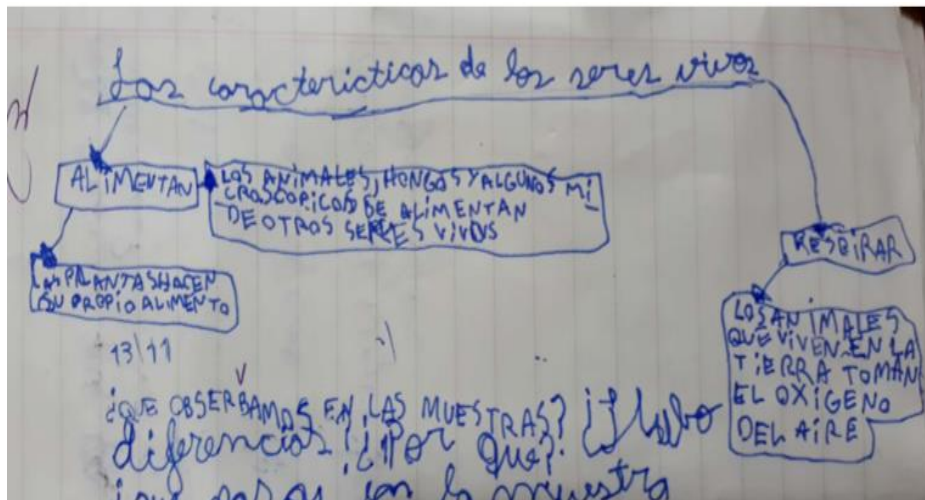 Las caracterícticas de los seres vivos
ALIMENTAN
LOS ANIMALES, HONGOS Y ALGUNOS MI
CROSCOPICOS DE ALIMENTAN
DE OTROS SERES VIVOS
LAS PLANTAS HACEN
SU PROPIO ALIMENTO
RESPIRAR
LOS ANIMALES
QUE VIVEN EN LA
TIERRA TOMAN
EL OXÍGENO
DEL AIRE
13/11
V
¿QUE OBSERBAMOS EN LAS MUESTRAS? ¿Hubo
diferencias? ¿Por que?
la muestra